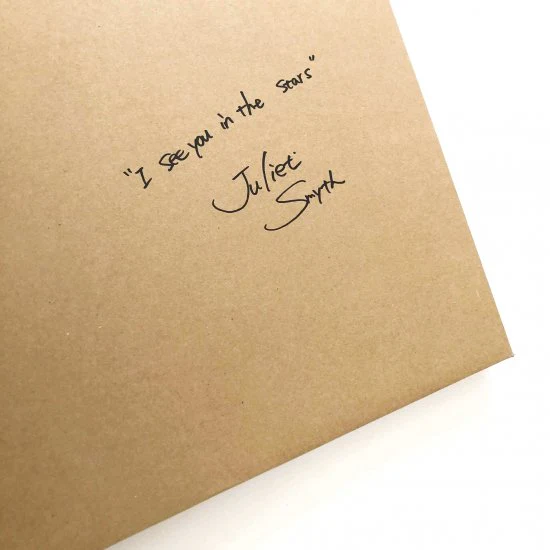 "I see you in the stars"
Juliet
Smyth